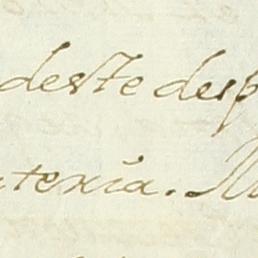 deste desp
teria. N